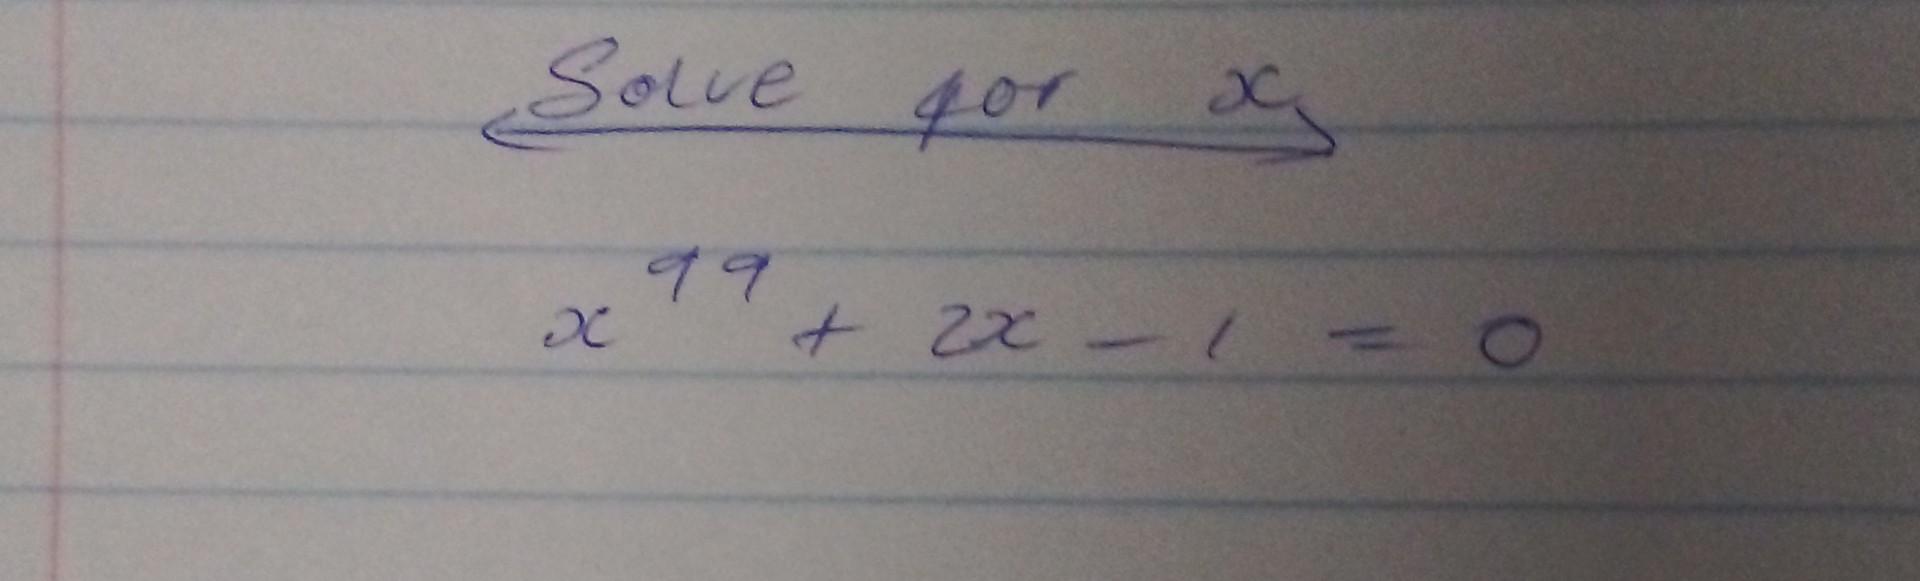 Solve for x
x⁹⁹ + 2x - 1 = 0